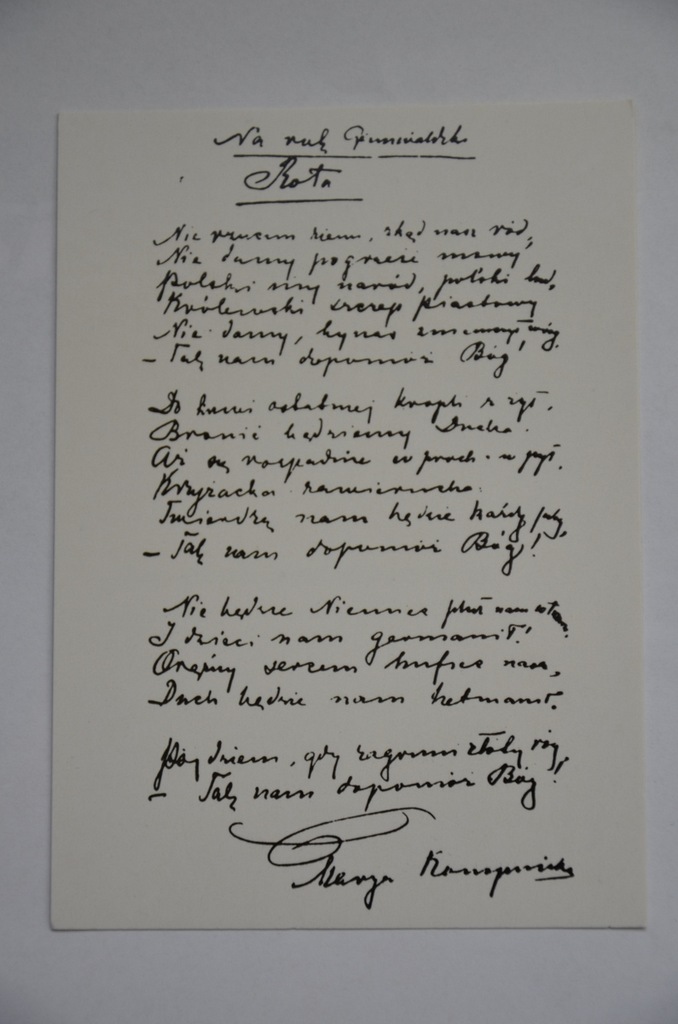 Na rok Grunwaldzki
Rota
Nie rzucim ziemi, skąd nasz ród,
Nie damy pogrześć mowy,
Polski my naród, polski lud,
Królewski szczep piastowy
Nie damy, by nas zniemczył wróg.
– Tak nam dopomóż Bóg!
Do krwi ostatniej kropli z żył,
Bronić będziemy Ducha.
Aż się rozpadnie w proch i w pył,
Krzyżacka zawierucha.
Twierdzą nam będzie każdy próg,
– Tak nam dopomóż Bóg!
Nie będzie Niemiec pluł nam w twarz.
I dzieci nam germanił!
Orężny sercem hufiec nasz,
Duch będzie nam hetmanił.
Pójdziem, gdy zagrzmi złoty róg.
– Tak nam dopomóż Bóg!
Marya Konopnicka